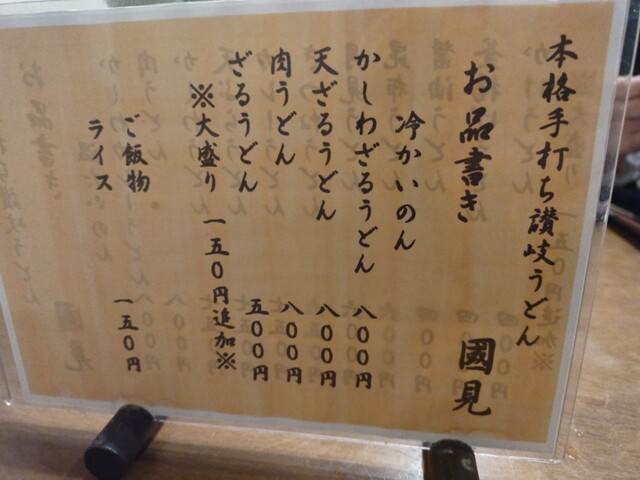 本格手打ち讃岐うどん
お品書き 國見
冷かいのん
かしわざるうどん 八００円
天ざるうどん 八００円
肉うどん 八００円
ざるうどん 五００円
※大盛り 一五０円追加※
ご飯物
ライス 一五０円